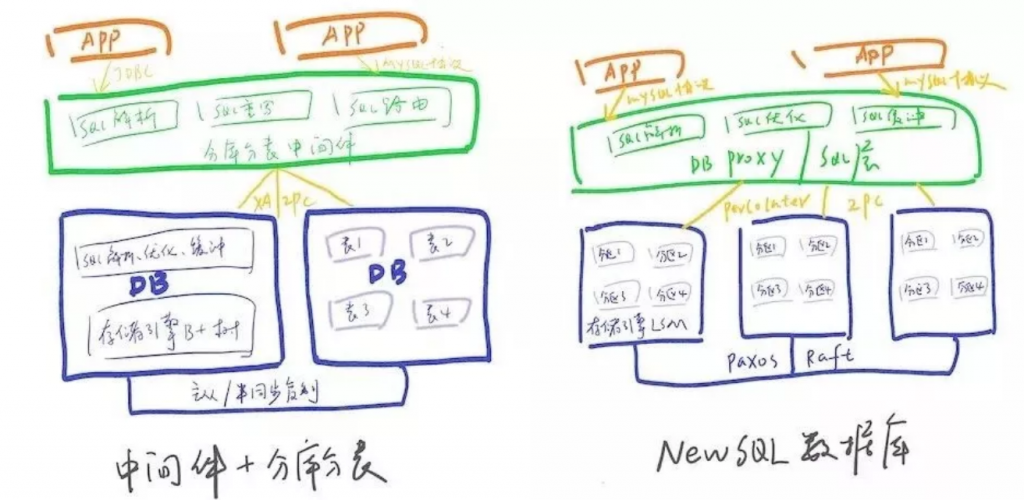 APP
APP
JDBC
MySQL协议
SQL解析
SQL重写
SQL路由
分库分表中间件
XA
2PC
SQL解析、优化、缓冲
DB
存储引擎B+树
表1
表2
DB
表3
表4
主从/半同步复制
中间件+分库分表
APP
APP
MySQL协议
MySQL协议
SQL解析
SQL优化
SQL缓冲
DB proxy
SQL层
percolater
2PC
分区1
分区2
分区3
分区4
存储引擎LSM
分区1
分区2
分区3
分区4
分区1
分区2
分区3
分区4
paxos
Raft
NewSQL数据库